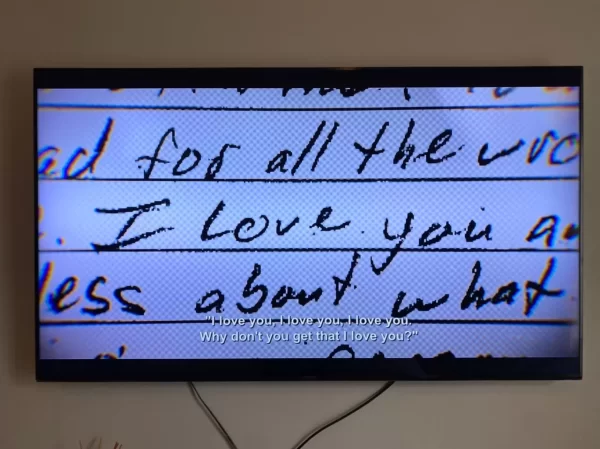 ad for all the wro
. I Love you a
less about what
"I love you, I love you, I love you.
Why don't you get that I love you?"